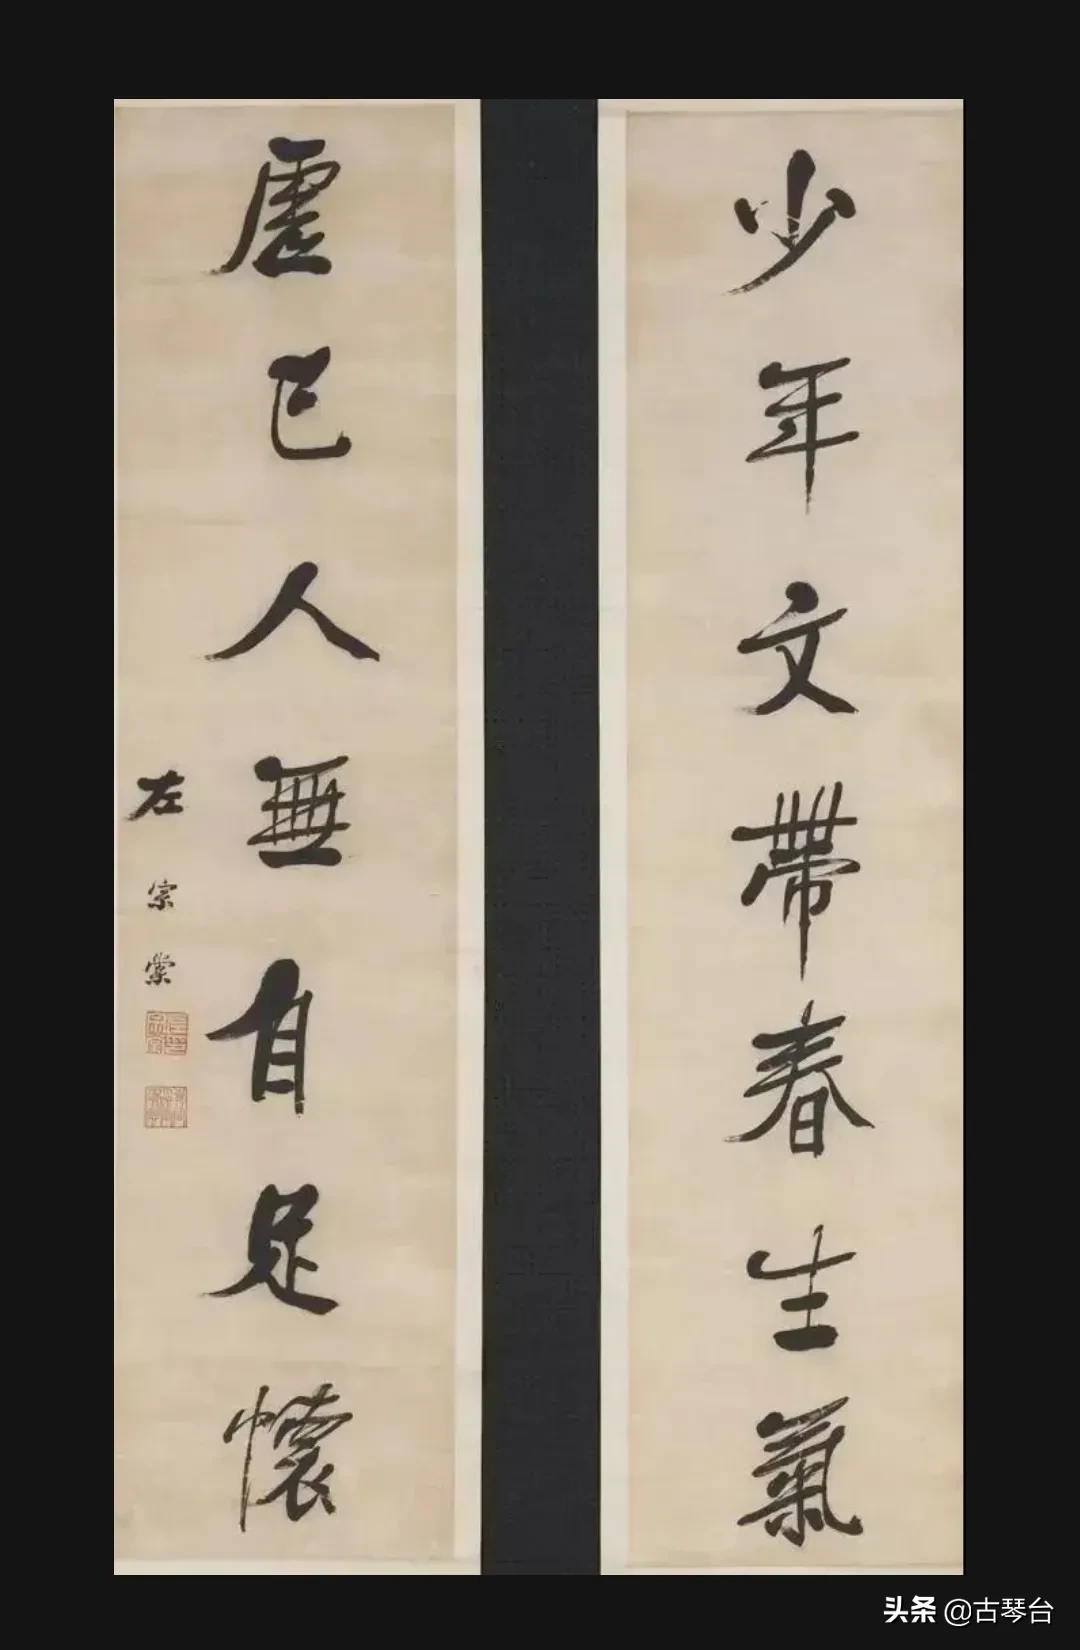 少年文帶春生氣
虛己人無自足懷
左宗棠
头条 @古琴台